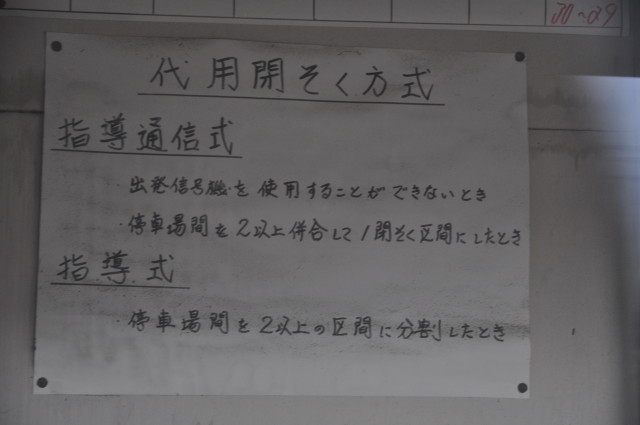 30~29
代用閉そく方式
指導通信式
・出発信号機を使用することができないとき
・停車場間を2以上併合して1閉そく区間にしたとき
指導式
・停車場間を2以上の区間に分割したとき